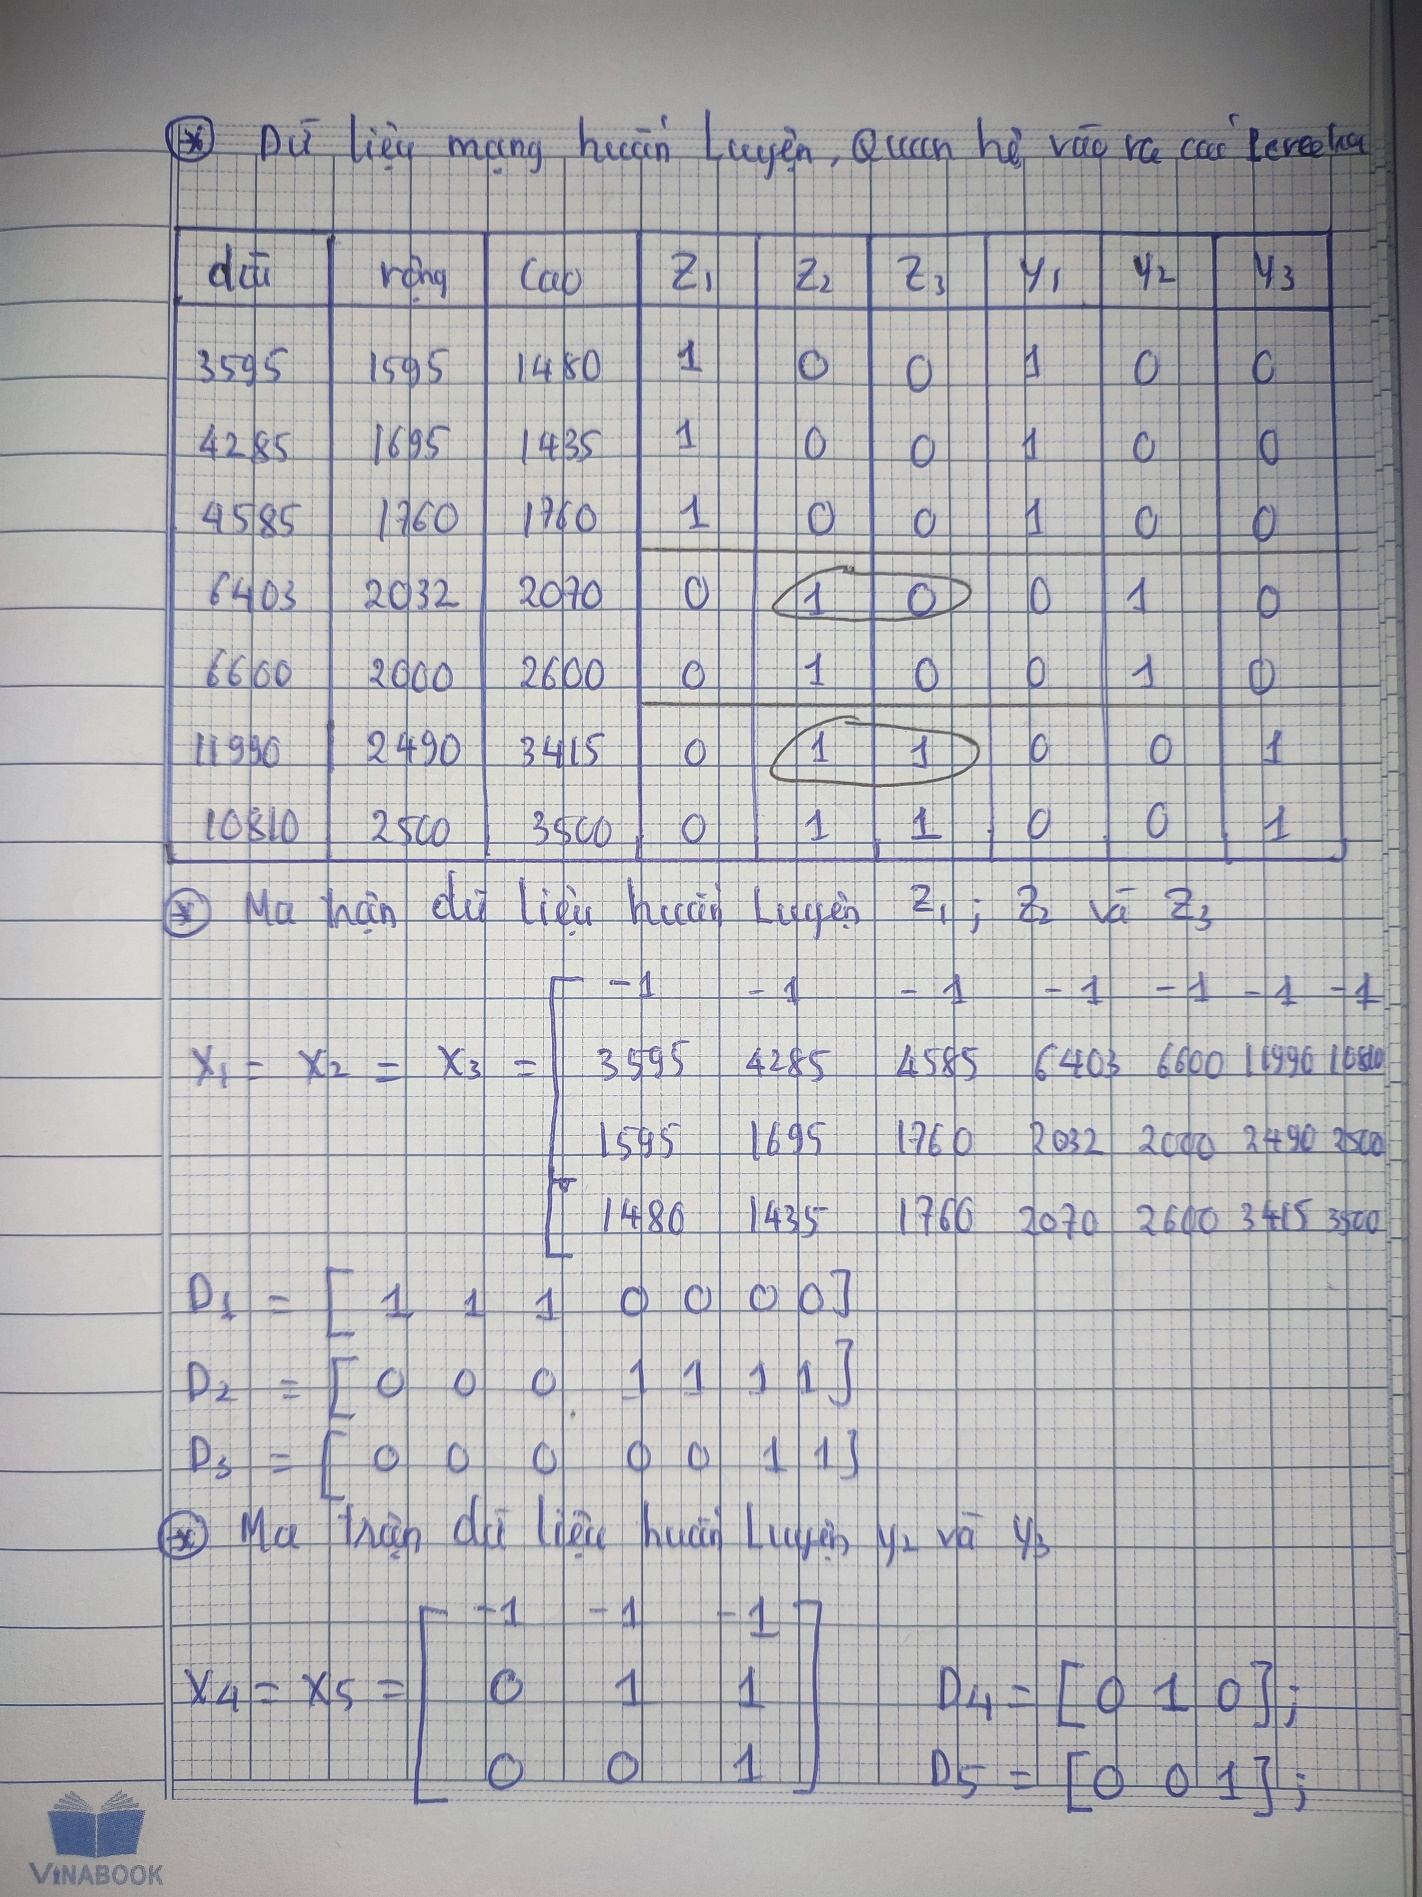 * Dữ liệu mạng huấn luyện, Quan hệ vào ra các Perceptron
dài rộng Cao Z1 Z2 Z3 Y1 Y2 Y3
3595 1595 1480 1 0 0 1 0 0
4285 1695 1435 1 0 0 1 0 0
4585 1760 1760 1 0 0 1 0 0
6403 2032 2070 0 1 0 0 1 0
6600 2000 2600 0 1 0 0 1 0
11990 2490 3415 0 1 1 0 0 1
10810 2500 3500 0 1 1 0 0 1
* Ma trận dữ liệu huấn Luyện Z1; Z2 và Z3
-1 -1 -1 -1 -1 -1 -1
X1 = X2 = X3 = [ 3595 4285 4585 6403 6600 11990 10810
1595 1695 1760 2032 2000 2490 2500
1480 1435 1760 2070 2600 3415 3500
D1 = [ 1 1 1 0 0 0 0]
D2 = [ 0 0 0 1 1 1 1]
D3 = [ 0 0 0 0 0 1 1]
* Ma trận dữ liệu huấn Luyện y2 và y3
-1 -1 -1
X4 = X5 = [ 0 1 1 ] D4 = [0 1 0];
0 0 1 D5 = [0 0 1];
VINABOOK